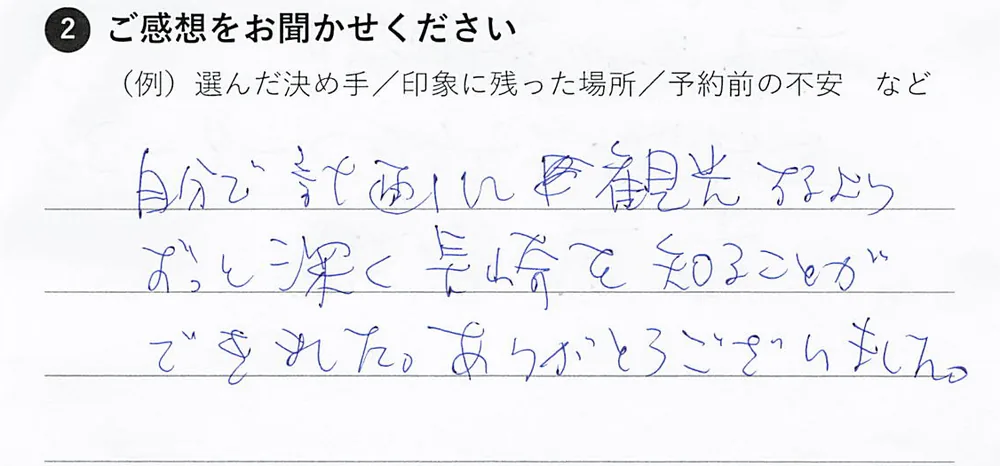 2 ご感想をお聞かせください
（例）選んだ決め手／印象に残った場所／予約前の不安　など
自分で計画して観光するより
ずっと深く長崎を知ることが
できました。ありがとうございました。